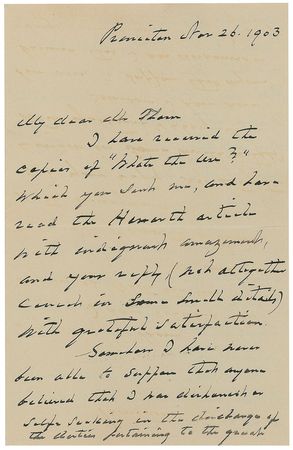 Princeton Nov 26. 1903
My dear Mr Thorn
I have received the
copies of "What's the Use?"
which you sent me, and have
read the Howarth article
with indignant amazement,
and your reply (not altogether
correct in some small details)
with grateful satisfaction.
Somehow I have never
been able to suppose that anyone
believed that I was dishonest or
self seeking in the discharge of
the duties pertaining to the great